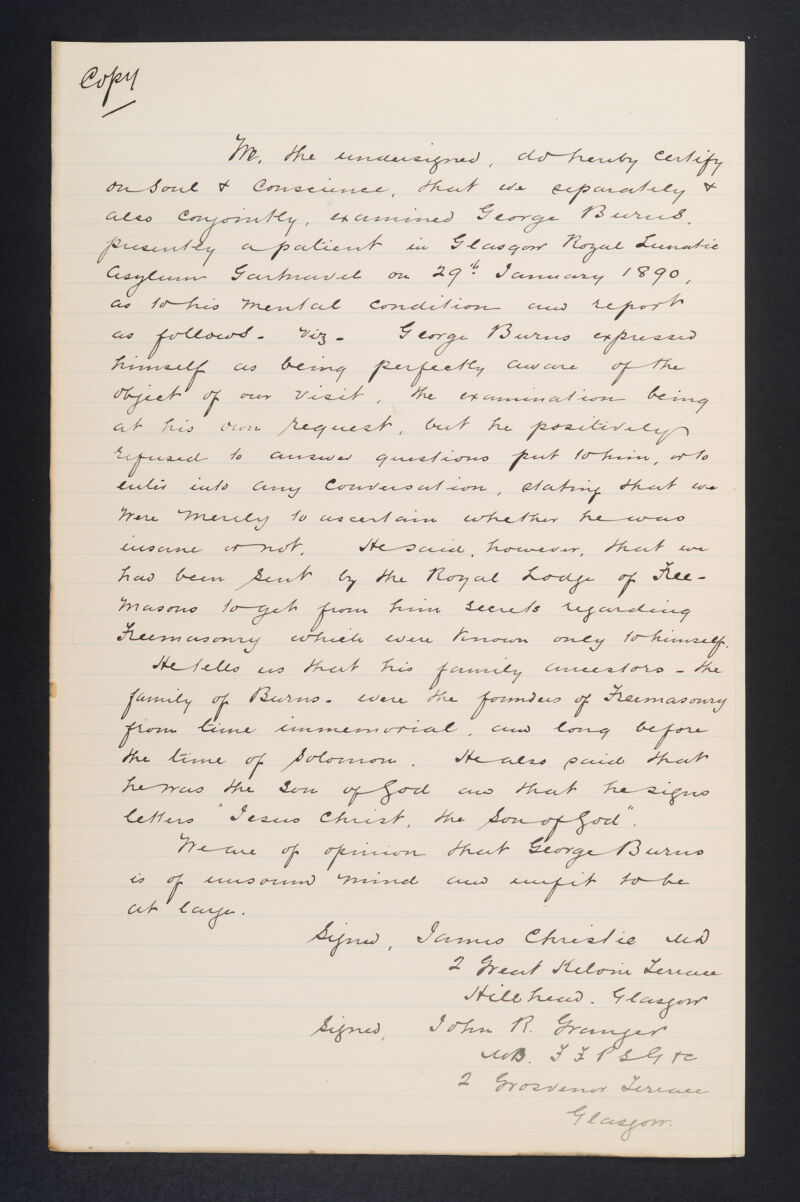 Copy
We, the undersigned, do hereby certify
on Soul & Conscience, that we separately &
also conjointly, examined George Burns,
presently a patient in Glasgow Royal Lunatic
Asylum Gartnavel on 29th January 1890,
as to his mental condition and report
as follows. Viz - George Burns expressed
himself as being perfectly aware of the
object of our visit, the examination being
at his own request, but he positively
refused to answer questions put to him, or to
enter into any conversation, stating that we
were merely to ascertain whether he was
insane or not. He said, however, that we
had been sent by the Royal Lodge of Free-
Masons to get from him secrets regarding
Freemasonry which were known only to himself.
He tells us that his family ancestors - the
family of Burns - were the founders of Freemasonry
from time immemorial, and long before
the time of Solomon. He also said that
he was the Son of God and that he signs
letters "Jesus Christ, the Son of God".
We are of opinion that George Burns
is of unsound mind and unfit to be
at large.
Signed, James Christie MD
2 Great Kelvin Terrace
Hillhead. Glasgow
Signed, John R. Granger
MB. F F P S G &c
2 Grosvenor Terrace
Glasgow.